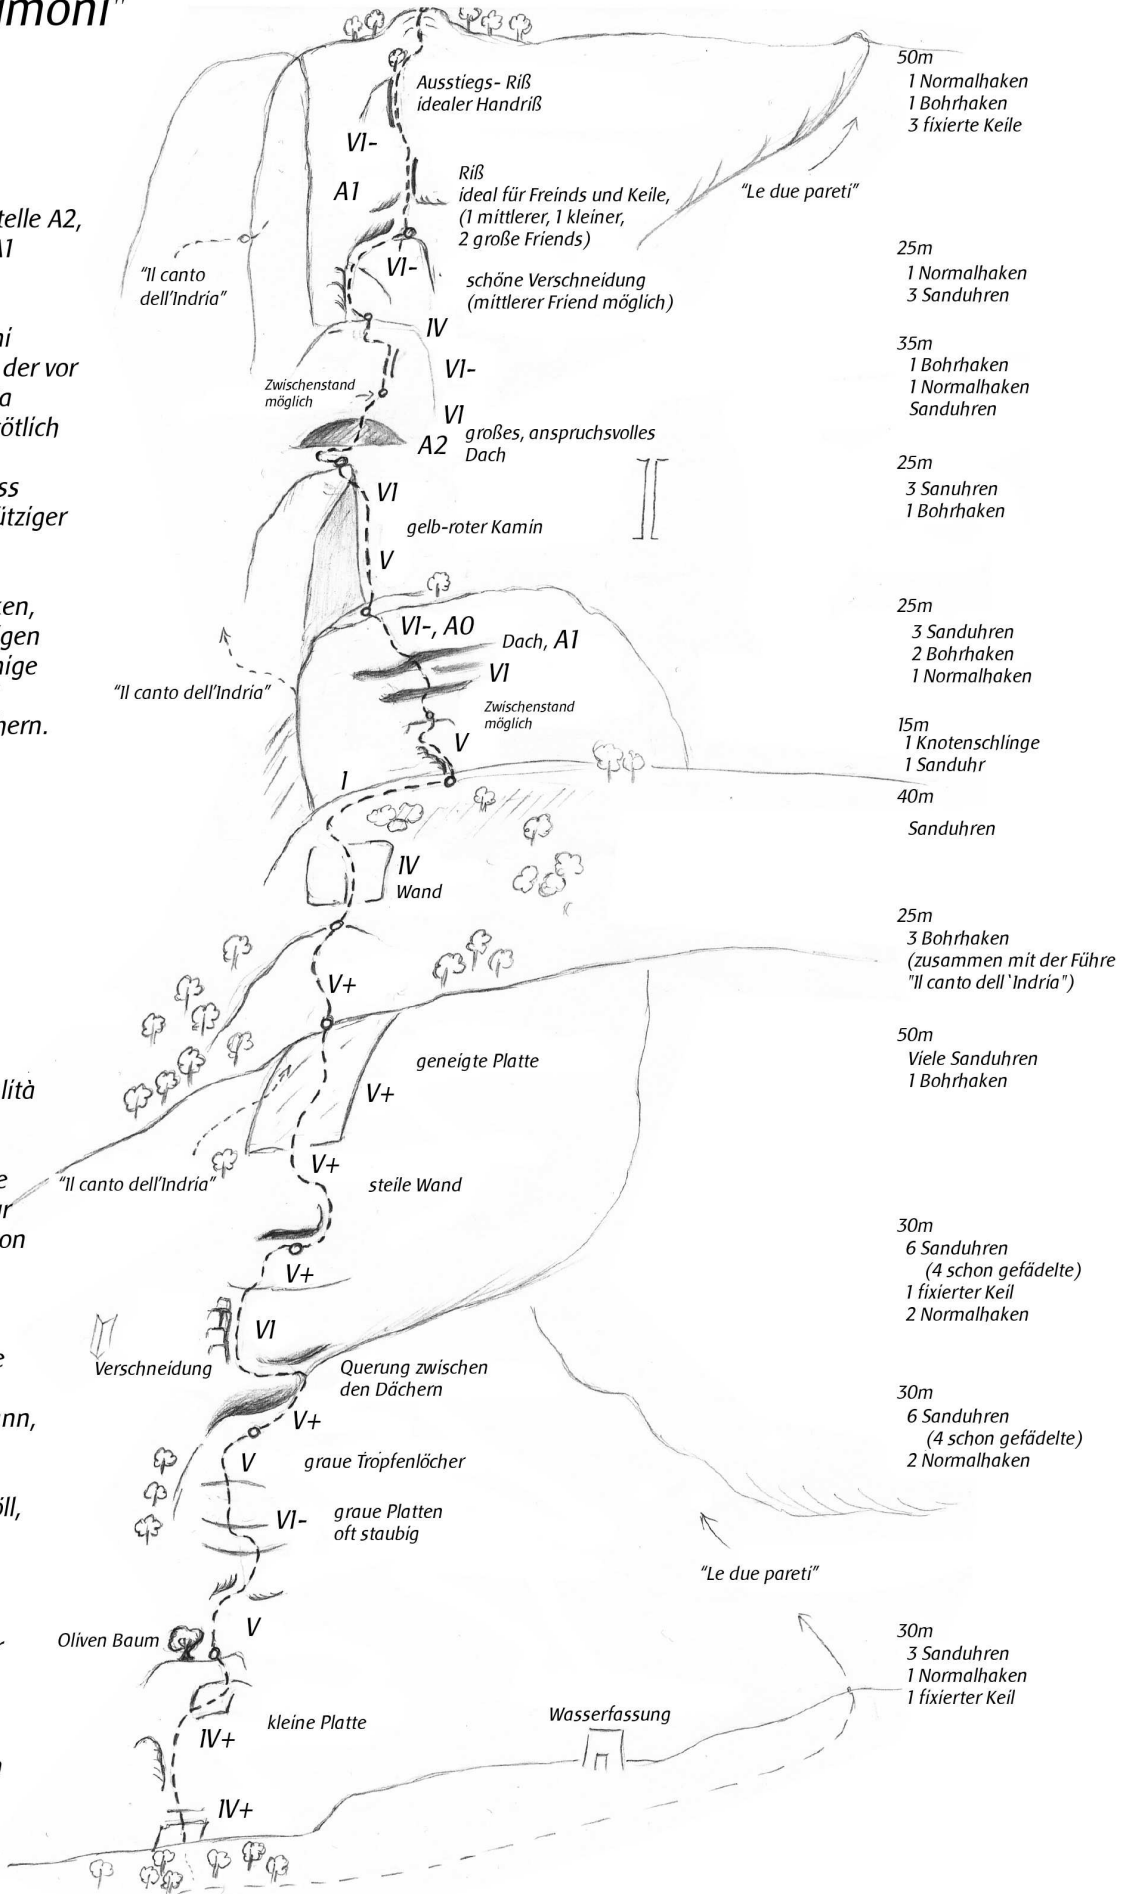 imoni"
telle A2,
A1
ni
der vor
a
ötlich
ss
ütziger
ken,
igen
nige
hern.
lità
e
ur
on
e
ann,
öll,
r
Ausstiegs- Riß
idealer Handriß
VI-
A1
Riß
ideal für Freinds und Keile,
(1 mittlerer, 1 kleiner,
2 große Friends)
"Le due pareti"
"Il canto
dell'Indria"
VI-
schöne Verschneidung
(mittlerer Friend möglich)
IV
VI-
Zwischenstand
möglich
VI
A2
großes, anspruchsvolles
Dach
VI
gelb-roter Kamin
V
VI-, A0
Dach, A1
VI
"Il canto dell'Indria"
Zwischenstand
möglich
V
I
IV
Wand
V+
geneigte Platte
V+
V+
"Il canto dell'Indria"
steile Wand
V+
VI
Verschneidung
Querung zwischen
den Dächern
V+
V
graue Tropfenlöcher
VI-
graue Platten
oft staubig
"Le due pareti"
V
Oliven Baum
kleine Platte
IV+
Wasserfassung
IV+
50m
1 Normalhaken
1 Bohrhaken
3 fixierte Keile
25m
1 Normalhaken
3 Sanduhren
35m
1 Bohrhaken
1 Normalhaken
Sanduhren
25m
3 Sanuhren
1 Bohrhaken
25m
3 Sanduhren
2 Bohrhaken
1 Normalhaken
15m
1 Knotenschlinge
1 Sanduhr
40m
Sanduhren
25m
3 Bohrhaken
(zusammen mit der Führe
"Il canto dell`Indria")
50m
Viele Sanduhren
1 Bohrhaken
30m
6 Sanduhren
(4 schon gefädelte)
1 fixierter Keil
2 Normalhaken
30m
6 Sanduhren
(4 schon gefädelte)
2 Normalhaken
30m
3 Sanduhren
1 Normalhaken
1 fixierter Keil